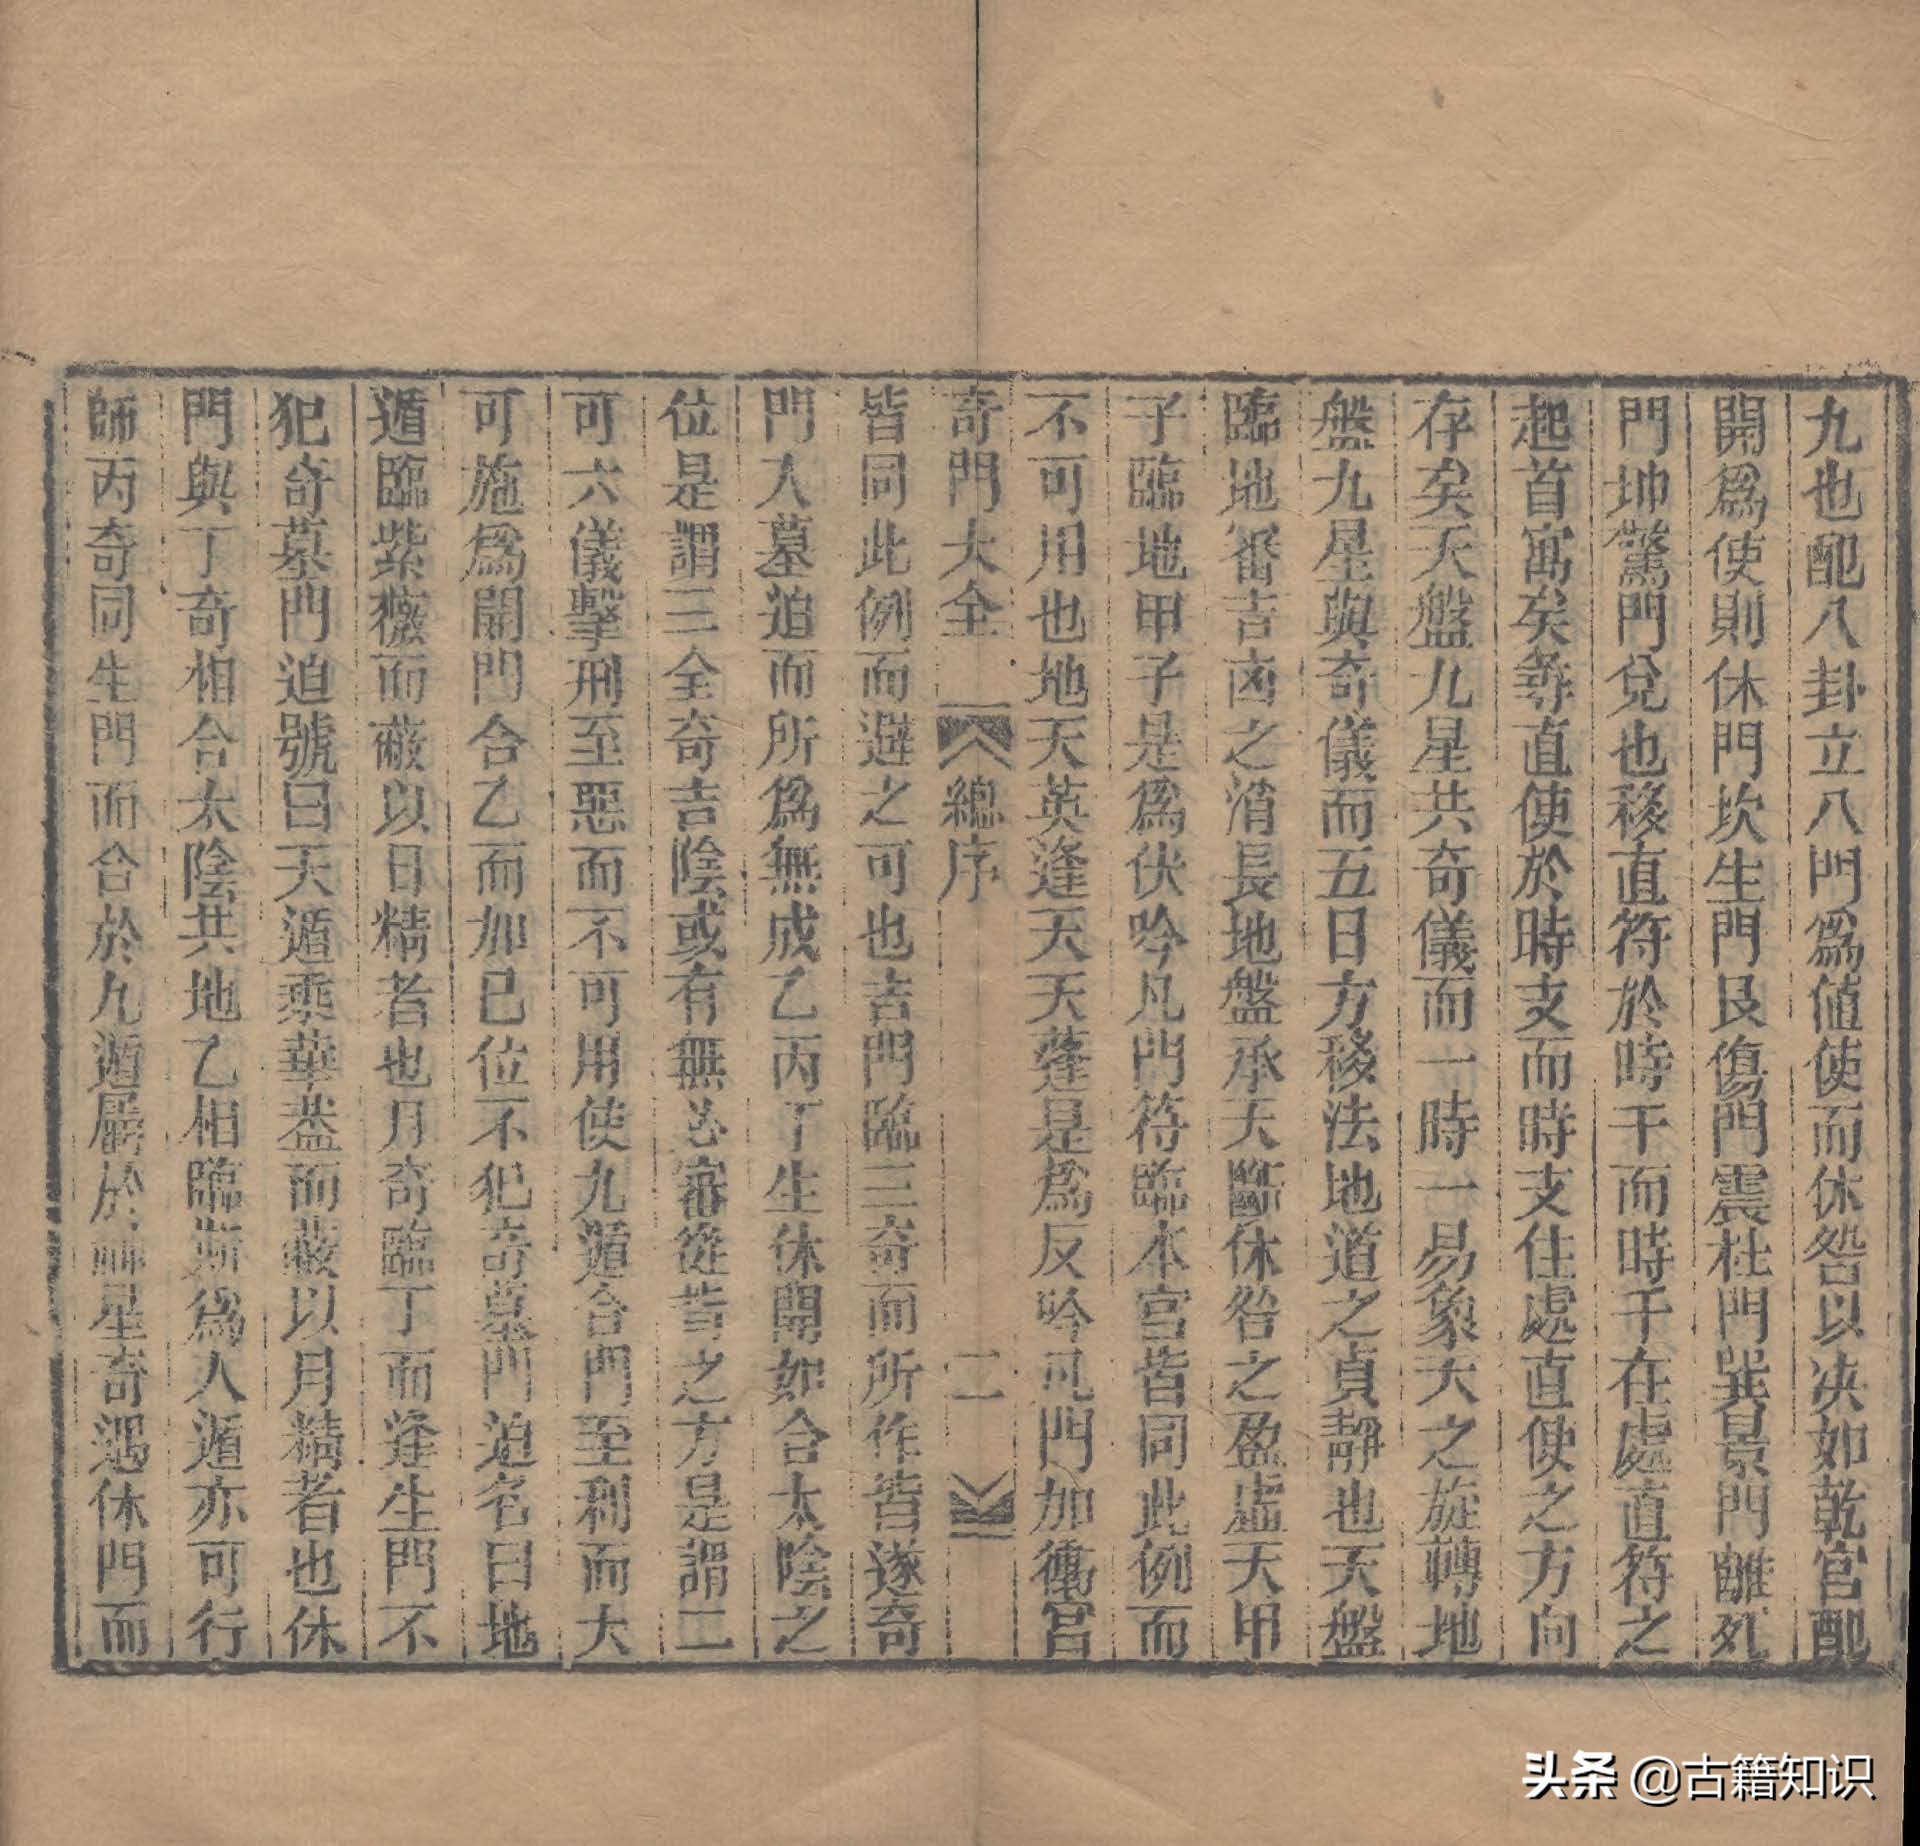 九也配八卦立八門爲值使而休咎以决如乾宫配
開爲使則休門坎生門艮傷門震杜門巽景門離死
門坤驚門兌也移直符於時干而時干在處直符之
起首寓矣尋直使於時支而時支住處直使之方向
存矣天盤九星共奇儀而一時一易象天之旋轉地
盤九星與奇儀而五日方移法地道之貞靜也天盤
臨地審吉凶之消長地盤承天斷休咎之盈虛天甲
子臨地甲子是爲伏吟凡門符臨本宫皆同此例而
不可用也地天英逢天天蓬是爲反吟凡門加衝宫
奇門大全 總序 二
皆同此例而避之可也吉門臨三奇而所作皆遂奇
門入墓迫而所爲無成乙丙丁生休開如合太陰之
位是謂三全奇吉陰或有無必審從皆之方是謂二
可六儀擊刑至惡而不可用使九遁合門至利而大
可施爲開門合乙而加己位不犯奇墓門迫名曰地
遁臨紫薇而蔽以日精者也月奇臨丁而逢生門不
犯奇墓門迫號曰天遁乘華蓋而蔽以月精者也休
門與丁奇相合太陰共地乙相臨斯爲人遁亦可行
師丙奇同生門而合於九遁屬於神星奇遇休門而
头条 @古籍知识